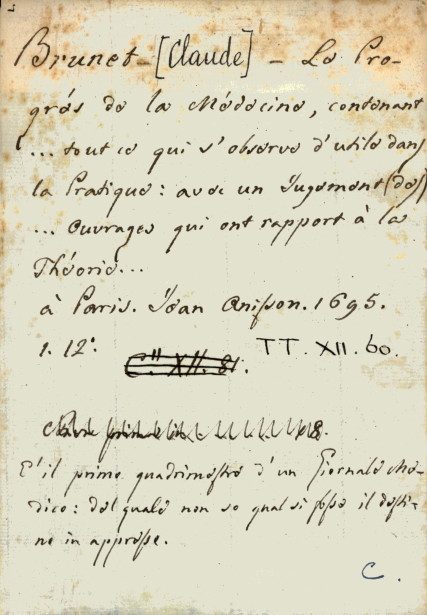 Brunet - [Claude] - Le Pro-
grés de la Médecine, contenant
... tout ce qui s'observe d'utile dans
la Pratique: avec un Jugement (des)
... ouvrages qui ont rapport à la
Théorie...
à Paris. Jean Anisson. 1695.
1. 12°. TT. XII. 60.
E' il primo quadrimestre d'un Giornale Me-
dico: del quale non so qual si fosse il desti-
no in appresso.
C.